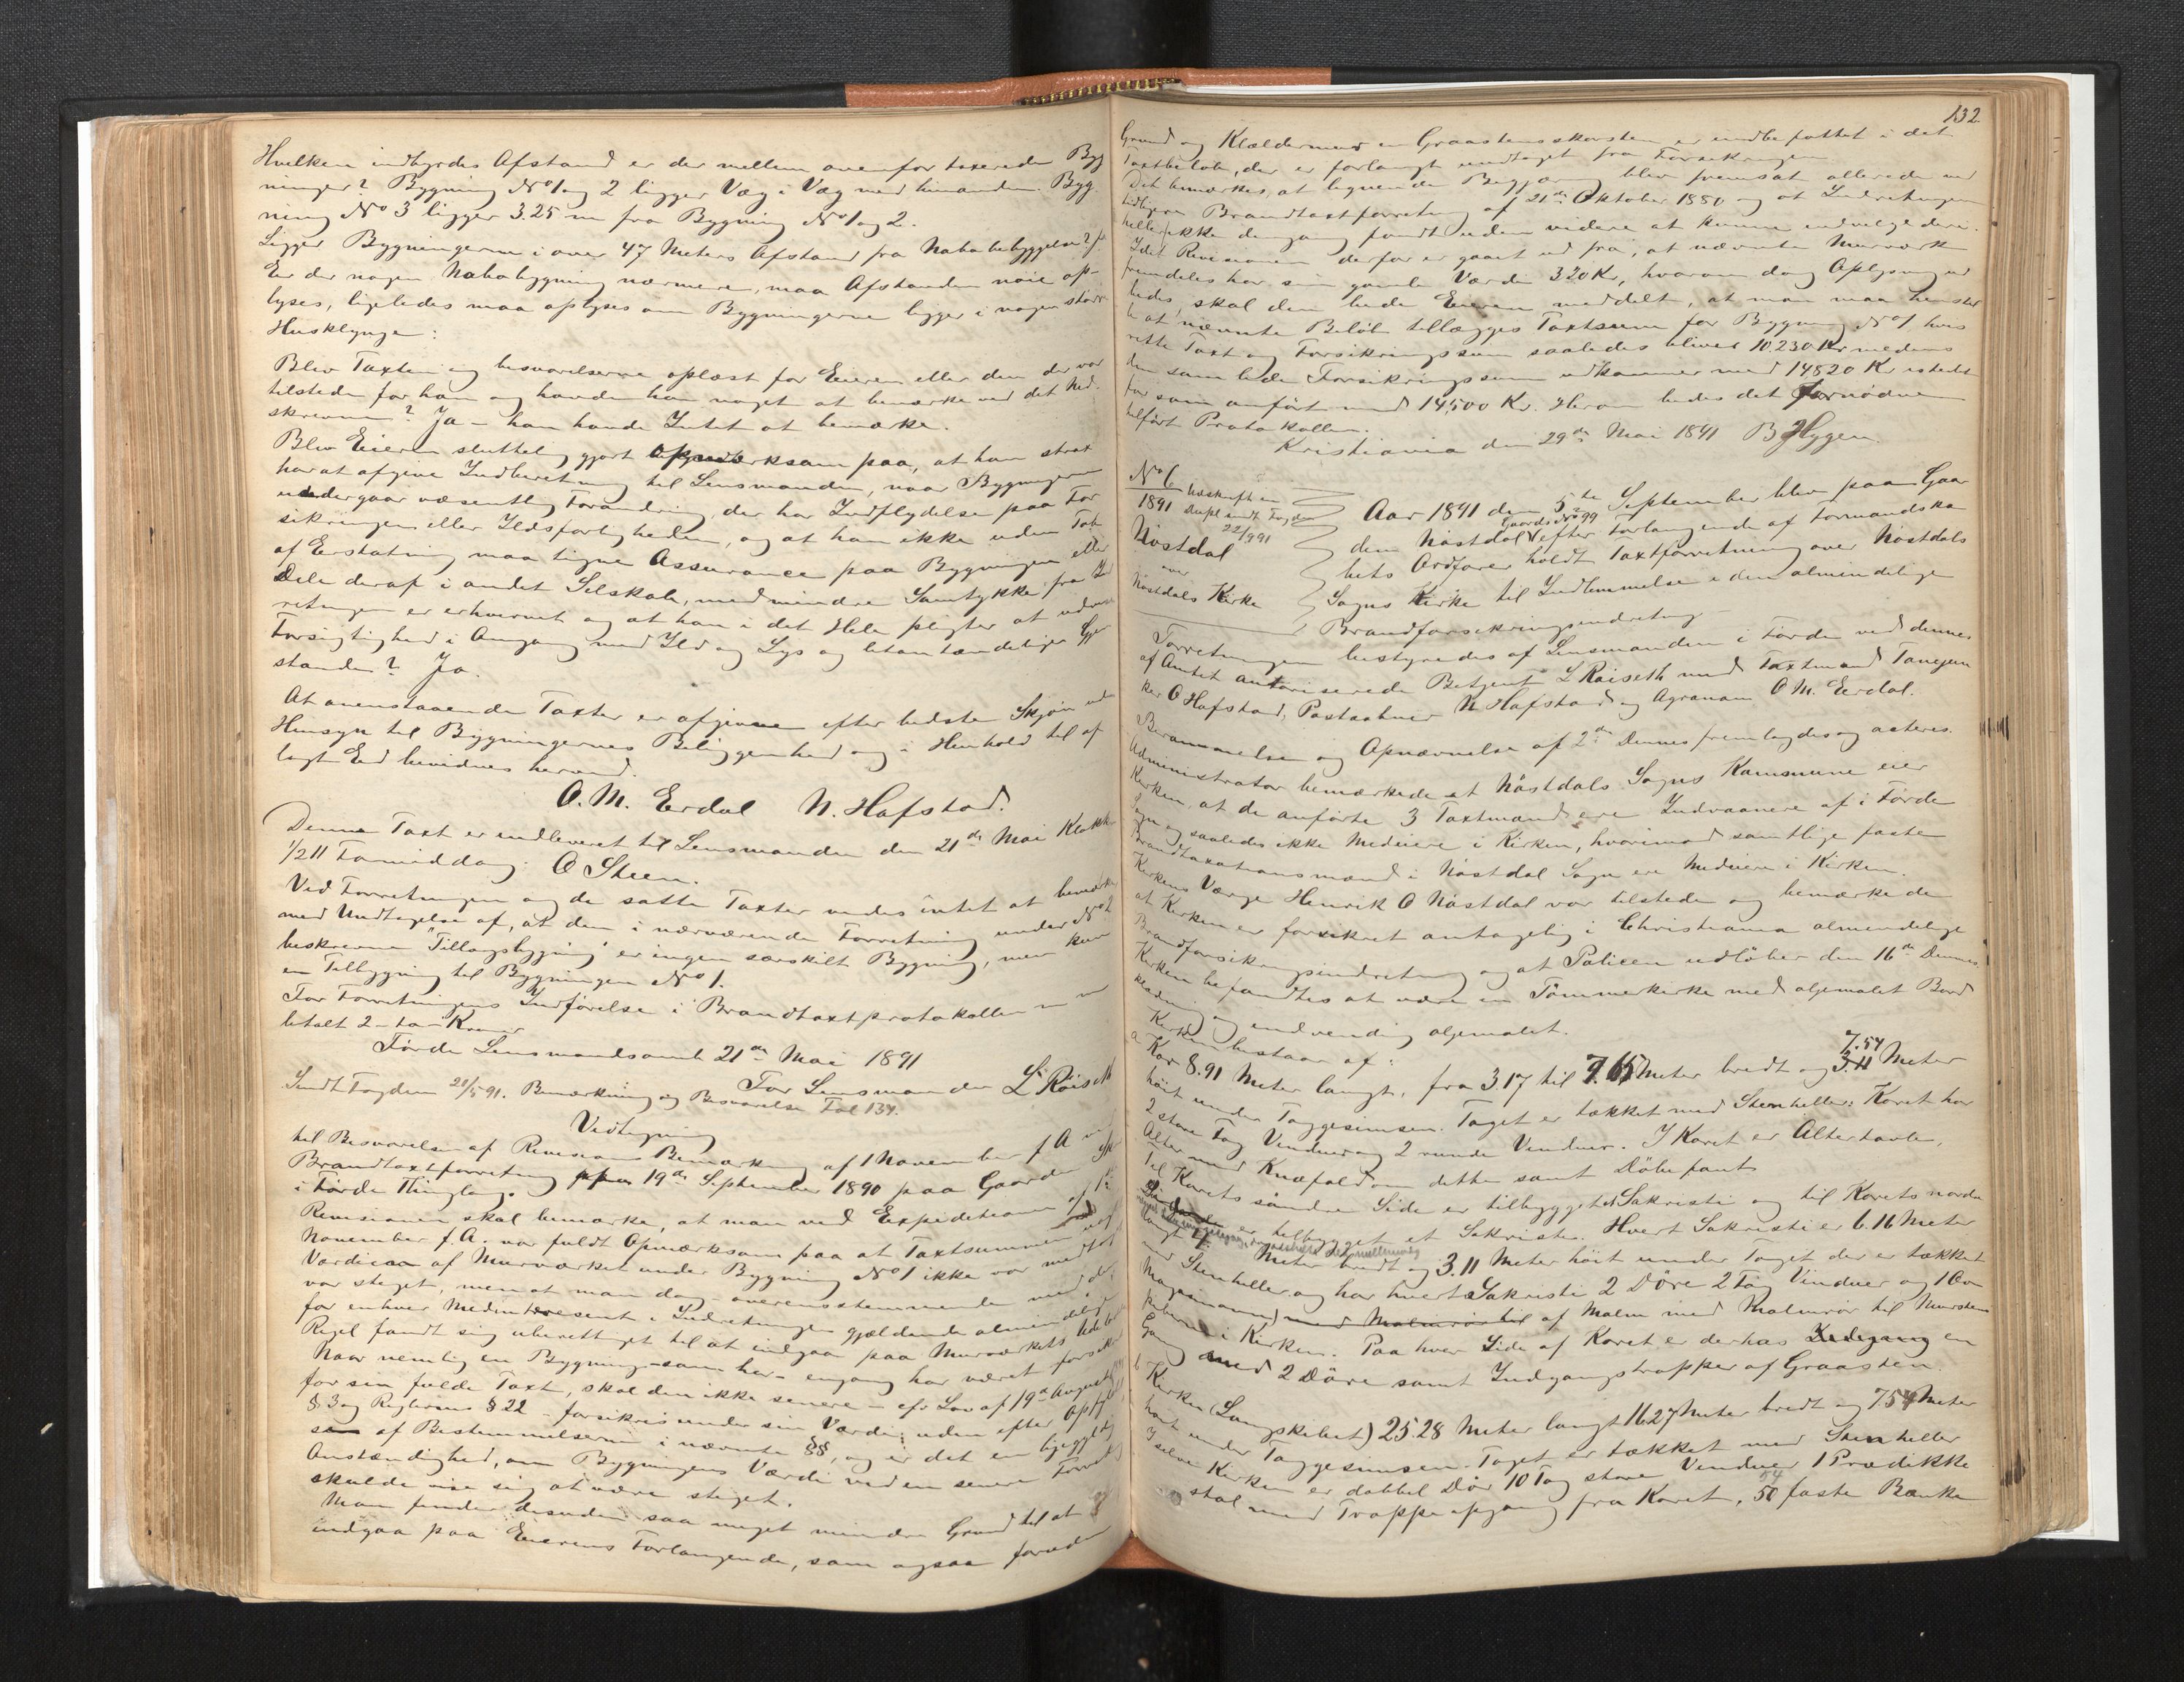 Hvilken indbyrdes Afstand er der mellem ovenfor taxerede Byg
ninger? Bygning No 1 og 2 ligger Væg i Væg med hinanden. Byg-
ning No 3 ligger 3.25 m fra Bygning No 1 og 2.
Ligger Bygningerne i over 47 Meters Afstand fra Nabobebyggelse?
Er der nogen Nabobygning nærmere, maa Afstanden nøie op-
lyses, ligeledes maa oplyses om Bygningerne ligger i nogen større
Husklynge:
Blev Taxten og besvarelserne oplæst for Eieren eller den der var
tilstede for ham og havde han noget at bemærke ved det Ned-
skrevne? Ja - han havde Intet at bemærke.
Blev Eieren sluttelig gjort opmærksom paa, at han strax
har at afgive Indberetning til Lensmanden, naar Bygningerne
undergaar væsentlig Forandring, der har Indflydelse paa For
sikringen eller Ildsfarligheden, og at han ikke uden Tab
af Erstatning maa tegne Assurance paa Bygningen eller
Dele deraf i andet Selskab, medmindre Samtykke fra Ind
retningen er erhvervet og at han i det Hele pligter at udvise
Forsigtighed i Omgang med Ild og Lys og letantændelige Gjen
stande? Ja.
At ovenstaaende Taxter er afgivne efter bedste Skjøn uden
Hensyn til Bygningernes Beliggenhed og i Henhold til af
lagt Ed bevidnes herved.
O. M. Erdal N. Hafstad.
Denne Taxt er indleveret til Lensmanden den 21de Mai Klokken
1/2 11 Formiddag. O Steen.
Ved Forretningen og de satte Taxter vides intet at bemærke
med Undtagelse af, at den i nærværende Forretning under No 2
beskrevne "Tillægsbygning" er ingen særskilt Bygning, men kun
en Tilbygning til Bygningen No 1.
For Forretningens Indførelse i Brandtaxtprotokollen
betalt 2 - to - Kroner
Førde Lensmandsomb 21de Mai 1891
For Lensmanden L Röiseth
Sendt Fogden 21/5 91. Bemærkning og Besvarelse Fol 134.
Vedtegning
til Besvarelse af Revisions Bemærkning af 1 November f A
Brandtaxtforretning 19de September 1890 paa Gaarden
i Førde Thinglag.
Revisionen skal bemærke, at man ved Expeditionen af 1ste
November f. A. var fuldt Opmærksom paa at Taxtsummen
Værdien af Murværket under Bygning No 1 ikke var medtaget
var steget, men at man dog - overensstemmende med den
for enhver Medinteressent i Indretningen gjældende almindelige
Regel fandt sig uberettiget til at indgaa paa Murværkets Udelukkelse
Naar nemlig en Bygning - som her - engang har været forsikret
for sin fulde Taxt, skal den ikke senere - cfr Lov af 19de August
§ 3 og Reglerens § 22 - forsikres under sin Værdi, uden efter Opfyl
af Bestemmelserne i nævnte §§, og er det en ligegyldig
Omstændighed, om Bygningens Værdi ved en senere Forretning
skulde vise sig at være steget.
Man finder desuden saa meget mindre Grund til at
indgaa paa Eierens Forlangende, som ogsaa
132
Grund og Kjældermur en Graastensskorsten er indbefattet i det
Taxtbeløb, der er forlangt undtaget fra Forsikringen.
Det bemærkes, at lignende Begjæring blev fremsat allerede ved
tidligere Brandtaxtforretning af 21de Oktober 1880 og at Indretningen
heller ikke dengang fandt uden videre at kunne indvilge deri.
Idet Revisionen derfor er gaaet ud fra, at nævnte Murværk
fremdeles har sin gamle Værdi 320 Kr, hvorom dog Oplysning ud
bedes, skal den bede Eieren meddelt, at man maa henstil
le at nævnte Beløb tillægges Taxtsum for Bygning No 1 hvis
rette Taxt og Forsikringssum saaledes bliver 10,230 Kr medens
den samlede Forsikringssum udkommer med 14820 Kr istedet
for som anført med 14,500 Kr. Herom bedes det fornødne
tilført Protokollen.
Kristiania den 29de Mai 1891 B Hygen.
No 6
1891 Udskrift in
Dupl sendt Fogden
22/9 91
Nöstdal
over
Nöstdals Kirke
Aar 1891 den 5te September blev paa Gaar
den Nöstdal Gaards No 99 efter Forlangende af Formandska
bets Ordfører holdt Taxtforretning over Nöstdals
Sogns Kirke til Indlemmelse i den almindelige
Brandforsikringsindretning -
Forretningen bestyredes af Lensmanden i Førde ved dennes
af Amtet autoriserede Betjent L Röiseth med Taxtmænd
O Hafstad, Postaabner N Hafstad og Agronom O M. Erdal.
Berammelse og Opnævnelse af 2de Dennes fremlagdes og acteres.
Administrator bemærkede at Nöstdals Sogns Kommune eier
Kirken, at de anførte 3 Taxtmænd ere Indvaanere af i Førde
Sogn og saaledes ikke Medeiere i Kirken, hvorimod samtlige faste
Brandtaxationsmænd i Nöstdal Sogn ere Medeiere i Kirken.
Kirkens Værge Henrik O Nöstdal var tilstede og bemærkede
at Kirken er forsikret antagelig i Christiania almindelige
Brandforsikringsindretning og at Policen udløber den 16de Dennes.
Kirken befandtes at være en Tømmerkirke med oljemalet Bord
klædning og indvendig oljemalet.
Kirken bestaar af:
a Kor 8.91 Meter langt, fra 3.17 til 9.65 Meter bredt og 3.11 7.54 Meter
høit under Taggesimsen. Taget er tækket med Stenheller: Koret har
2 store Fag Vinduer og 2 runde Vinduer. I Koret er Altertavle,
Alter med Knæfald om dette samt Döbefont
Til Korets söndre Side er tilbygget et Sakristi og til Korets nordre
Side er tilbygget et Sakristi. Hvert Sakristi er 6.16 Meter
langt 4. Meter bredt og 3.11 Meter høit under Taget der er tækket
med Stenheller og har hvert Sakristi 2 Döre 2 Fag Vinduer og 1 Ovn
(Magasinovn) med Malmrør til af Malm med Malmrør til Mursten
piberne i Kirken. Paa hver Side af Koret er derhos Indgang en
Gang med 2 Döre samt Indgangstrapper af Graasten.
b Kirken (Langskibet) 25.28 Meter langt 16.27 Meter bredt og 7.54 Meter
høit under Taggesimsen. Taget er tækket med Stenheller
I selve Kirken er dobbel Dör 10 Fag store Vinduer 1 Prædikke
stol med Trappeopgang fra Koret, 50 54 faste Bænke